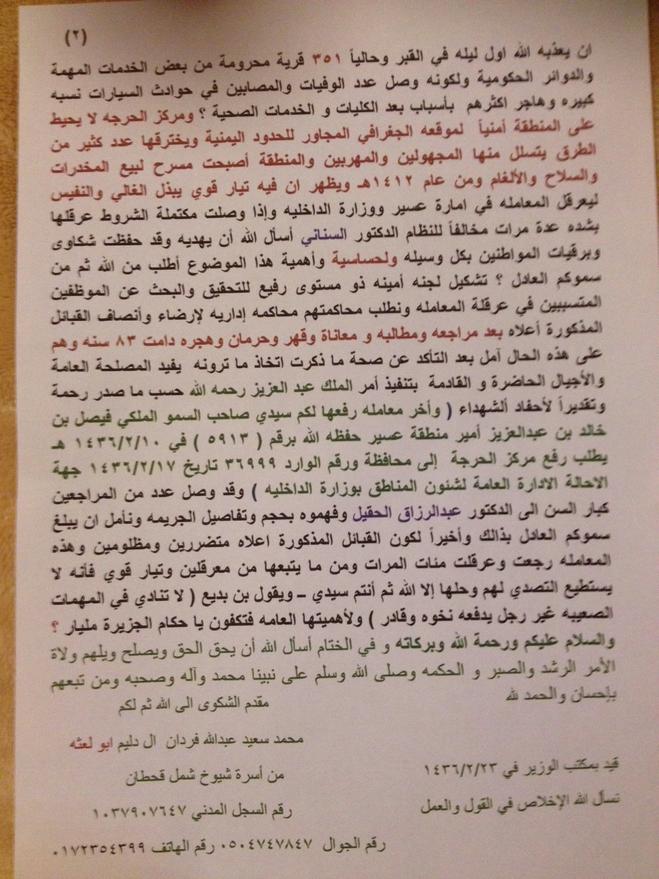 (٢)
ان يعذبه الله اول ليله في القبر وحالياً ٣٥١ قرية محرومة من بعض الخدمات المهمة
والدوائر الحكومية ولكونه وصل عدد الوفيات والمصابين في حوادث السيارات نسبه
كبيره وهاجر اكثرهم بأسباب بعد الكليات و الخدمات الصحية ؟ ومركز الحرجه لا يحيط
على المنطقة أمنياً لموقعه الجغرافي المجاور للحدود اليمنية ويخترقها عدد كثير من
الطرق يتسلل منها المجهولين والمهربين والمنطقة أصبحت مسرح لبيع المخدرات
والسلاح والألغام ومن عام ١٤١٢هـ ويظهر ان فيه تيار قوي يبذل الغالي والنفيس
ليعرقل المعامله في امارة عسير ووزارة الداخليه وإذا وصلت مكتملة الشروط عرقلها
بشده عدة مرات مخالفاً للنظام الدكتور السناني أسأل الله أن يهديه وقد حفظت شكاوى
وبرقيات المواطنين بكل وسيله ولحساسية وأهمية هذا الموضوع أطلب من الله ثم من
سموكم العادل ؟ تشكيل لجنه أمينه ذو مستوى رفيع للتحقيق والبحث عن الموظفين
المتسببين في عرقلة المعامله ونطلب محاكمتهم محاكمه إداريه لإرضاء وأنصاف القبائل
المذكورة أعلاه بعد مراجعه ومطالبه و معاناة وقهر وحرمان وهجره دامت ٨٣ سنه وهم
على هذه الحال آمل بعد التأكد عن صحة ما ذكرت اتخاذ ما ترونه يفيد المصلحة العامة
والأجيال الحاضرة و القادمة بتنفيذ أمر الملك عبد العزيز رحمه الله حسب ما صدر رحمة
وتقديراً لأحفاد ألشهداء ( وأخر معامله رفعها لكم سيدي صاحب السمو الملكي فيصل بن
خالد بن عبدالعزيز أمير منطقة عسير حفظه الله برقم ( ٥٩١٣ ) في ١٤٣٦/٢/١٠ هـ
يطلب رفع مركز الحرجة إلى محافظة ورقم الوارد ٣٦٩٩٩ تاريخ ١٤٣٦/٢/١٧ جهة
الاحالة الادارة العامة لشئون المناطق بوزارة الداخليه ) وقد وصل عدد من المراجعين
كبار السن الى الدكتور عبدالرزاق الحقيل وفهموه بحجم وتفاصيل الجريمه ونأمل ان يبلغ
سموكم العادل بذالك وأخيراً لكون القبائل المذكورة اعلاه متضررين ومظلومين وهذه
المعامله رجعت وعرقلت مئات المرات ومن ما يتبعها من معرقلين وتيار قوي فأنه لا
يستطيع التصدي لهم وحلها إلا الله ثم أنتم سيدي – ويقول بن بديع ( لا تنادي في المهمات
الصعيبه غير رجل يدفعه نخوه وقادر ) ولأهميتها العامه فتكفون يا حكام الجزيرة مليار ؟
والسلام عليكم ورحمة الله وبركاته و في الختام أسأل الله أن يحق الحق ويصلح ويلهم ولاة
الأمر الرشد والصبر و الحكمه وصلى الله وسلم على نبينا محمد وآله وصحبه ومن تبعهم
بإحسان والحمد لله
مقدم الشكوى الى الله ثم لكم
محمد سعيد عبدالله فردان ال دليم ابو لعثه
قيد بمكتب الوزير في ١٤٣٦/٢/٢٣
من أسرة شيوخ شمل قحطان
نسأل الله الإخلاص في القول والعمل
رقم السجل المدني ١٠٣٧٩٠٧٦٤٧
رقم الجوال ٠٥٠٤٧٤٧٨٤٧ رقم الهاتف ٠١٧٢٣٥٤٣٩٩